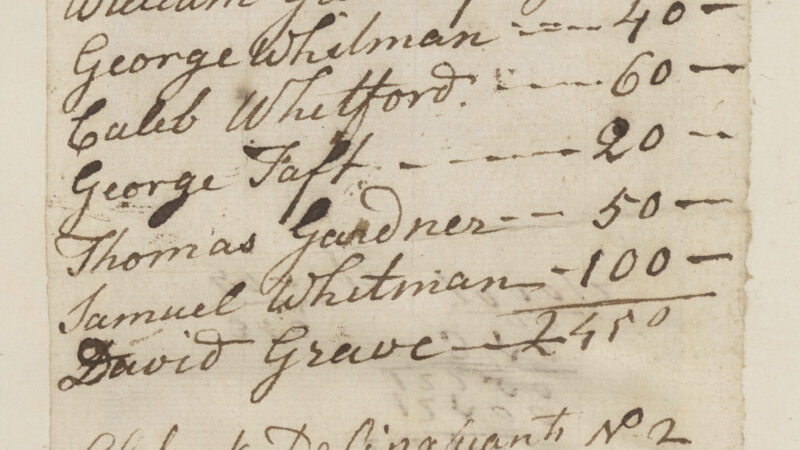 William
George Whitman - - - 40 -
Caleb Whitford. - - - 60 -
George Taft - - - 20 -
Thomas Gardner - - 50 -
Samuel Whitman - 100 -
David Grave - 2450
Delinquants No 2